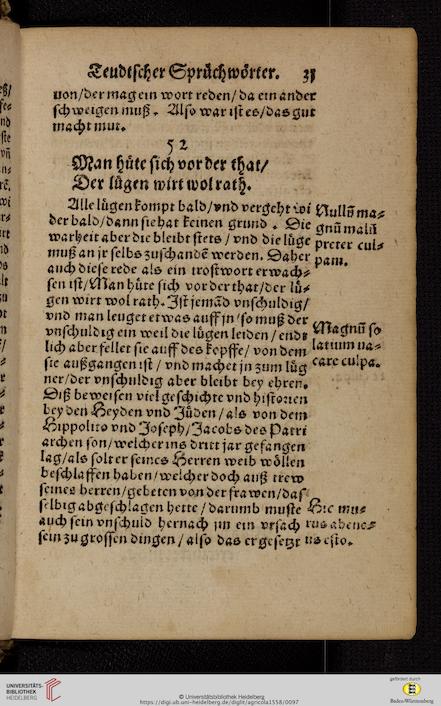 Teudtscher Sprüchwörter. 33
von/der mag ein wort reden/da ein ander
schweigen muß. Also war ist es/das gut
macht mut.
52
Man hüte sich vor der that/
Der lügen wirt wol rath.
Alle lügen kompt bald/vnd vergeht wi
der bald/dann sie hat keinen grund. Die
warheit aber die bleibt stets/vnd die lüge
muß an jr selbs zuschandē werden. Daher
auch diese rede als ein trostwort erwach=
sen ist/Man hüte sich vor der that/der lü=
gen wirt wol rath. Ist jemād vnschuldig/
vnd man leuget etwas auff jn/so muß der
vnschuldig ein weil die lügen leiden/endt
lich aber fellet sie auff des kopffe/von dem
sie außgangen ist/vnd machet jn zum lüg
ner/der vnschuldig aber bleibt bey ehren.
Diß beweisen viel geschichte vnd historien
bey den Heyden vnd Jüden/als von dem
Hippolito vnd Joseph/Jacobs des Patri
archen son/welcher ins dritt jar gefangen
lag/als solt er seines Herren weib wöllen
beschlaffen haben/welcher doch auß trew
seines herren/gebeten von der frawen/das
selbig abgeschlagen hette/darumb muste
auch sein vnschuld hernach jm ein vrsach
sein zu grossen dingen/also das er gesetzt
Nullū ma=
gnū malū
preter cul=
pam.
Magnū so
latium va=
care culpa.
Hic mu=
rus ahene=
us esto.
UNIVERSITÄTS-
BIBLIOTHEK
HEIDELBERG
© Universitätsbibliothek Heidelberg
https://digi.ub.uni-heidelberg.de/diglit/agricola1558/0097
gefördert durch
Baden-Württemberg